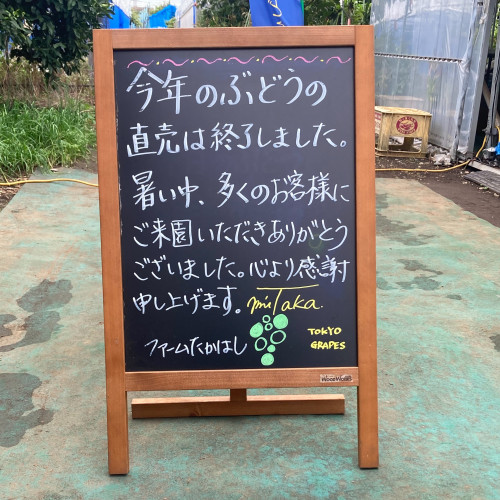 今年のぶどうの
直売は終了しました。
暑い中、多くのお客様に
ご来園いただきありがとう
ございました。心より感謝
申し上げます。
miTaka.
ファームたかはし
TOKYO
GRAPES